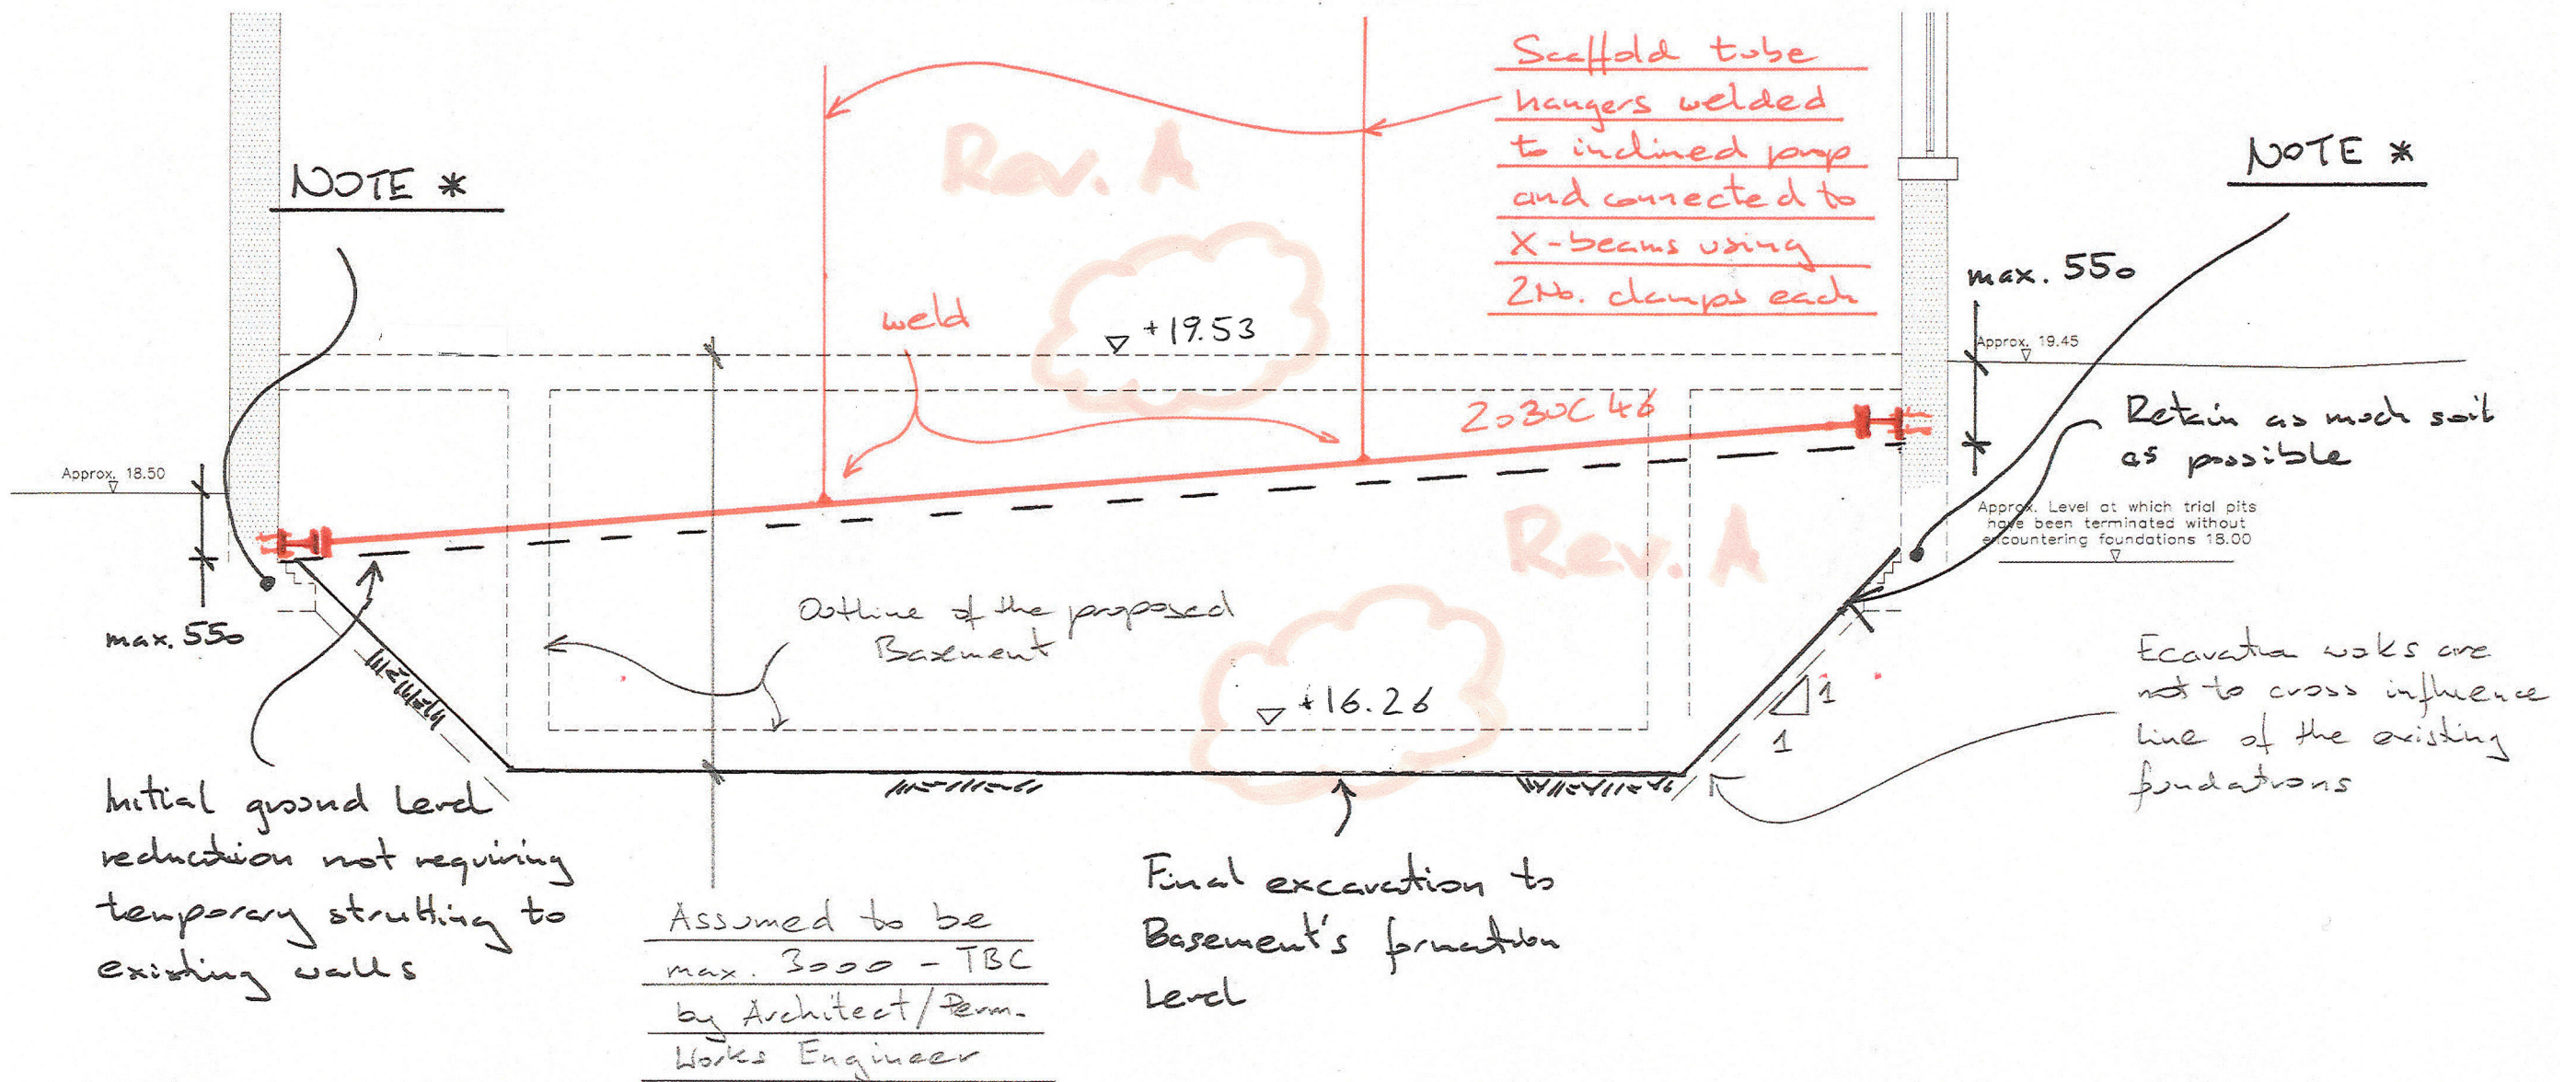 Scaffold tube
hangers welded
to inclined prop
and connected to
X-beams using
2No. clamps each
Rev. A
NOTE *
NOTE *
max. 550
weld
+19.53
Approx. 19.45
203UC 46
Retain as much soil
as possible
Approx. 18.50
Approx. Level at which trial pits
have been terminated without
encountering foundations 18.00
Rev. A
max. 550
Outline of the proposed
Basement
+16.26
1
1
Ecavation woks are
not to cross influence
line of the existing
foundations
Initial ground level
reduction not requiring
temporary strutting to
existing walls
Final excavation to
Basement's formation
Level
Assumed to be
max. 3000 - TBC
by Architect/Perm.
Works Engineer